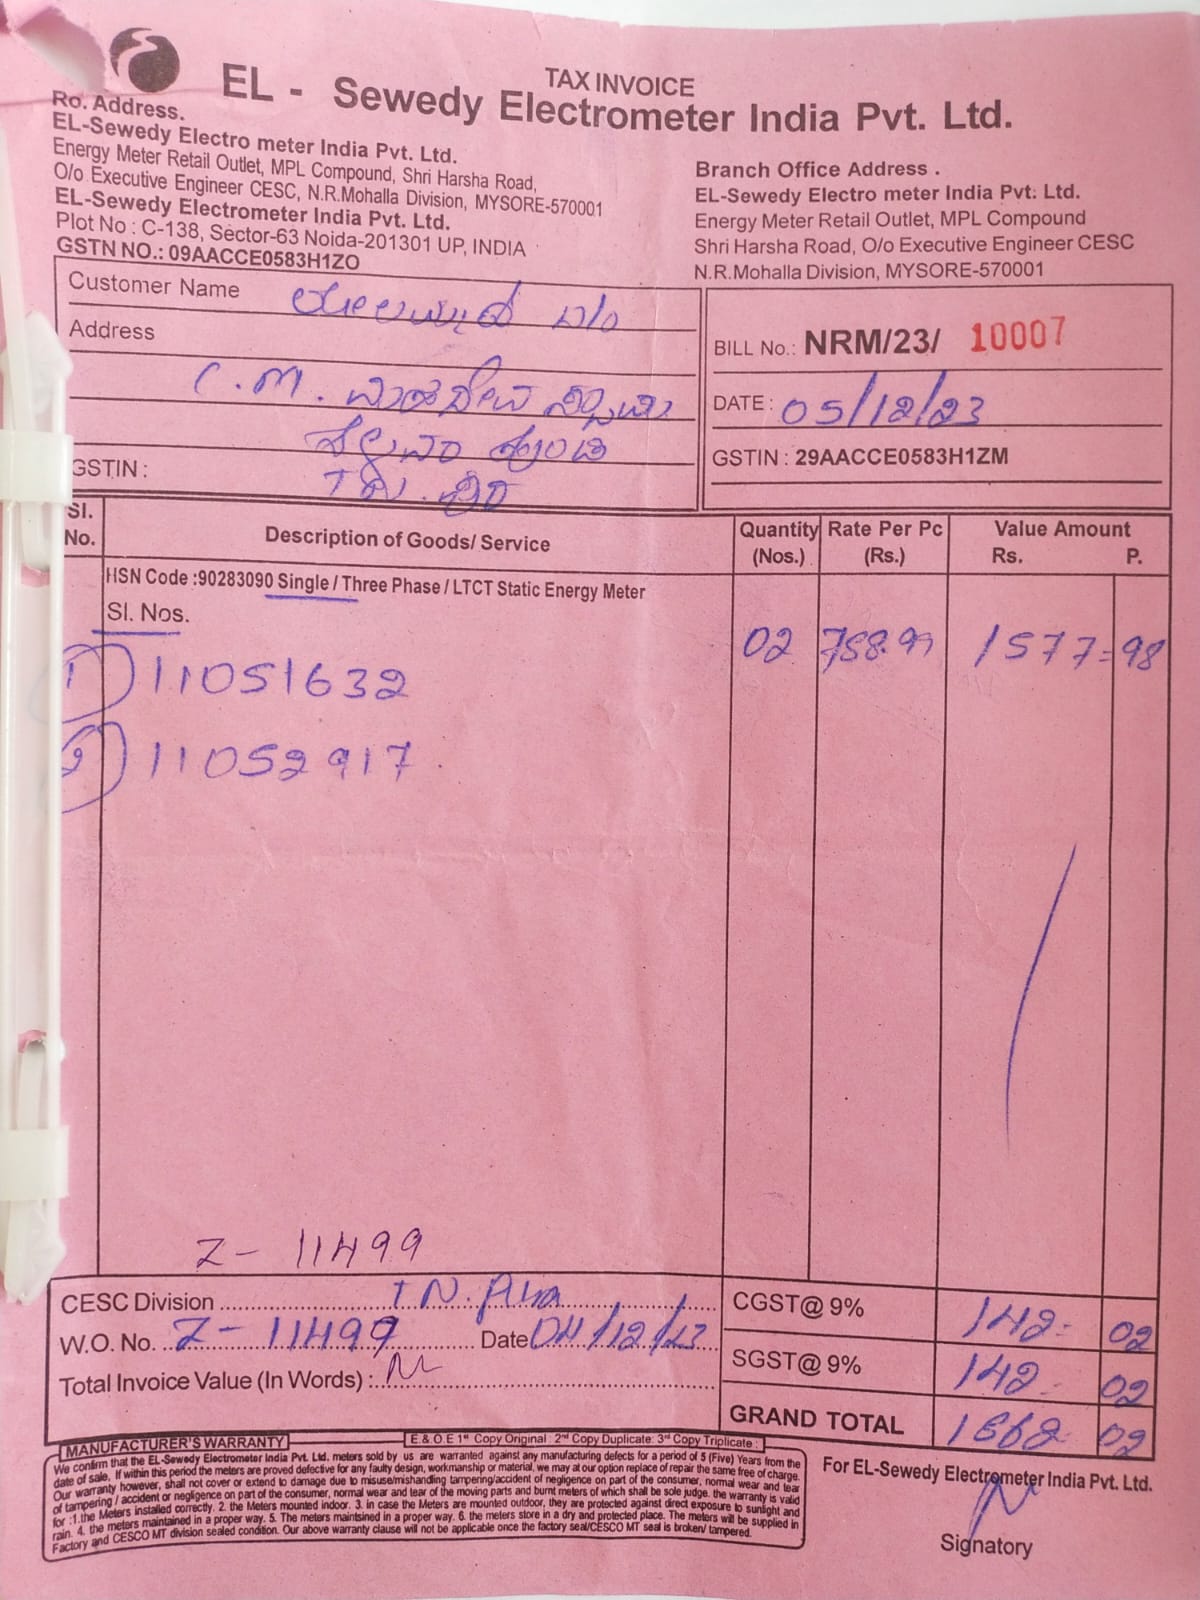 TAX INVOICE
EL - Sewedy Electrometer India Pvt. Ltd.
Ro. Address.
EL-Sewedy Electro meter India Pvt. Ltd.
Energy Meter Retail Outlet, MPL Compound, Shri Harsha Road,
O/o Executive Engineer CESC, N.R.Mohalla Division, MYSORE-570001
EL-Sewedy Electrometer India Pvt. Ltd.
Plot No : C-138, Sector-63 Noida-201301 UP, INDIA
GSTN NO.: 09AACCE0583H1ZO
Branch Office Address .
EL-Sewedy Electro meter India Pvt. Ltd.
Energy Meter Retail Outlet, MPL Compound
Shri Harsha Road, O/o Executive Engineer CESC
N.R.Mohalla Division, MYSORE-570001
Customer Name
Address
C.M.
GSTIN :
BILL No.: NRM/23/ 10007
DATE : 05/12/23
GSTIN : 29AACCE0583H1ZM
Sl. No. Description of Goods/ Service Quantity (Nos.) Rate Per Pc (Rs.) Value Amount Rs. P.
HSN Code :90283090 Single / Three Phase / LTCT Static Energy Meter
Sl. Nos.
1) 11051632 02 788.99 1577=98
2) 11052917
Z- 11499
CESC Division T N. Pura
W.O. No. Z- 11499 Date 04/12/23
Total Invoice Value (In Words) :
CGST@ 9% 142- 02
SGST@ 9% 142- 02
GRAND TOTAL 02
E & O E 1st Copy Original : 2nd Copy Duplicate: 3rd Copy Triplicate :
MANUFACTURER'S WARRANTY
We confirm that the EL-Sewedy Electrometer India Pvt. Ltd. meters sold by us are warranted against any manufacturing defects for a period of 5 (Five) Years from the
date of sale. If within this period the meters are proved defective for any faulty design, workmanship or material, we may at our option replace of repair the same free of charge.
Our warranty however, shall not cover or extend to damage due to misuse/mishandling tampering/accident of negligence on part of the consumer, normal wear and tear
of tampering / accident or negligence on part of the consumer, normal wear and tear of the moving parts and burnt meters of which shall be sole judge. the warranty is valid
for :1.the Meters installed correctly. 2. the Meters mounted indoor. 3. in case the Meters are mounted outdoor, they are protected against direct exposure to sunlight and
rain. 4. the meters maintained in a proper way. 5. The meters maintsined in a proper way. 6. the meters store in a dry and protected place. The meters will be supplied in
Factory and CESCO MT division sealed condition. Our above warranty clause will not be applicable once the factory seal/CESCO MT seal is broken/ tampered.
For EL-Sewedy Electrometer India Pvt. Ltd.
Signatory